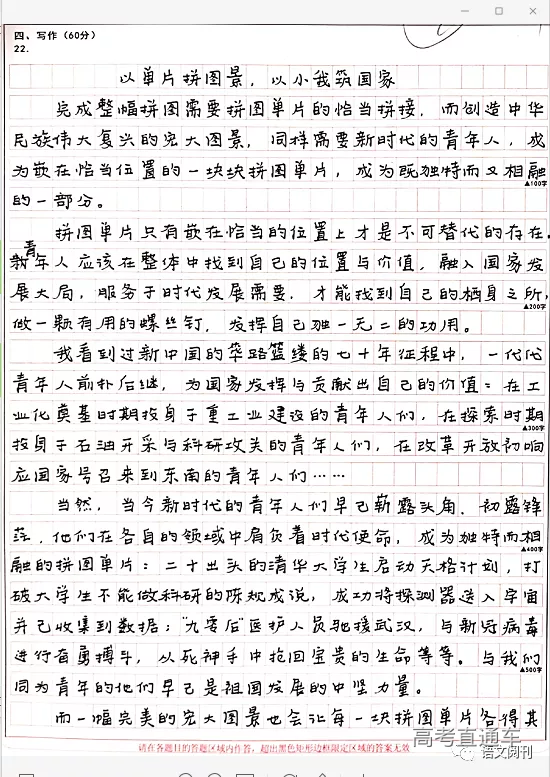 四、写作（60分）
22.
以单片拼图景，以小我筑国家
完成整幅拼图需要拼图单片的恰当拼接，而创造中华
民族伟大复兴的宏大图景，同样需要新时代的青年人，成
为嵌在恰当位置的一块块拼图单片，成为既独特而又相融
▲100字
的一部分。
拼图单片只有嵌在恰当的位置上才是不可替代的存在。
青年人应该在整体中找到自己的位置与价值，融入国家发
展大局，服务于时代发展需要，才能找到自己的栖身之所，
▲200字
做一颗有用的螺丝钉，发挥自己独一无二的功用。
我看到过新中国的筚路蓝缕的七十年征程中，一代代
青年人前扑后继，为国家发挥与贡献出自己的价值：在工
业化奠基时期投身于重工业建设的青年人们，在探索时期
▲300字
投身于石油开采与科研攻关的青年人们，在改革开放初响
应国家号召来到东南的青年人们……
当然，当今新时代的青年人们早已崭露头角，初露锋
芒，他们在各自的领域中肩负着时代使命，成为独特而相
▲400字
融的拼图单片：二十出头的清华大学生启动天格计划，打
破大学生不能做科研的陈规成说，成功将探测器送入宇宙
并已收集到数据；“九零后”医护人员驰援武汉，与新冠病毒
进行奋勇搏斗，从死神手中抢回宝贵的生命等等。与我们
▲500字
同为青年的他们早已是祖国发展的中坚力量。
而一幅完美的宏大图景也会让每一块拼图单片各得其
高考直通车
请在各题目的答题区域内作答，超出黑色矩形边框限定区域的答案无效
语文阅刊